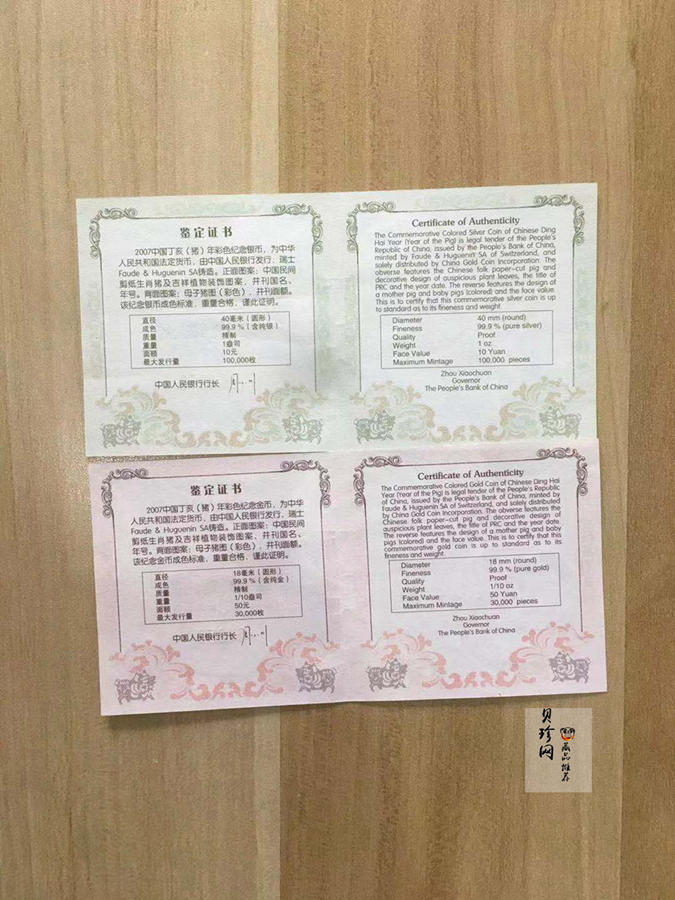 鉴定证书
2007中国丁亥（猪）年彩色纪念银币，为中华
人民共和国法定货币，由中国人民银行发行，瑞士
Faude & Huguenin SA铸造。正面图案：中国民间
剪纸生肖猪及吉祥植物装饰图案，并刊国名、
年号。背面图案：母子猪图（彩色），并刊面额。
该纪念银币成色标准，重量合格，谨此证明。
直径 40毫米（圆形）
成色 99.9％（含纯银）
质量 精制
重量 1盎司
面额 10元
最大发行量 100,000枚
中国人民银行行长
Certificate of Authenticity
The Commemorative Colored Silver Coin of Chinese Ding
Hai Year (Year of the Pig) is legal tender of the People's
Republic of China, issued by the People's Bank of China,
minted by Faude & Huguenin SA of Switzerland, and
solely distributed by China Gold Coin Incorporation. The
obverse features the Chinese folk paper-cut pig and
decorative design of auspicious plant leaves, the title of
PRC and the year date. The reverse features the design of
a mother pig and baby pigs (colored) and the face value.
This is to certify that this commemorative silver coin is up
to standard as to its fineness and weight.
Diameter 40 mm (round)
Fineness 99.9 % (pure silver)
Quality Proof
Weight 1 oz
Face Value 10 Yuan
Maximum Mintage 100,000 pieces
Zhou Xiaochuan
Governor
The People's Bank of China
鉴定证书
2007中国丁亥（猪）年彩色纪念金币，为中华
人民共和国法定货币，由中国人民银行发行，瑞士
Faude & Huguenin SA铸造。正面图案：中国民间
剪纸生肖猪及吉祥植物装饰图案，并刊国名、
年号。背面图案：母子猪图（彩色），并刊面额。
该纪念金币成色标准，重量合格，谨此证明。
直径 18毫米（圆形）
成色 99.9％（含纯金）
质量 精制
重量 1/10盎司
面额 50元
最大发行量 30,000枚
中国人民银行行长
Certificate of Authenticity
The Commemorative Colored Gold Coin of Chinese Ding Hai
Year (Year of the Pig) is legal tender of the People's Republic
of China, issued by the People's Bank of China, minted by
Faude & Huguenin SA of Switzerland, and solely distributed
by China Gold Coin Incorporation. The obverse features the
Chinese folk paper-cut pig and decorative design of
auspicious plant leaves, the title of PRC and the year date.
The reverse features the design of a mother pig and baby
pigs (colored) and the face value. This is to certify that this
commemorative gold coin is up to standard as to its
fineness and weight.
Diameter 18 mm (round)
Fineness 99.9 % (pure gold)
Quality Proof
Weight 1/10 oz
Face Value 50 Yuan
Maximum Mintage 30,000 pieces
Zhou Xiaochuan
Governor
The People's Bank of China
贝珍网
藏品推荐